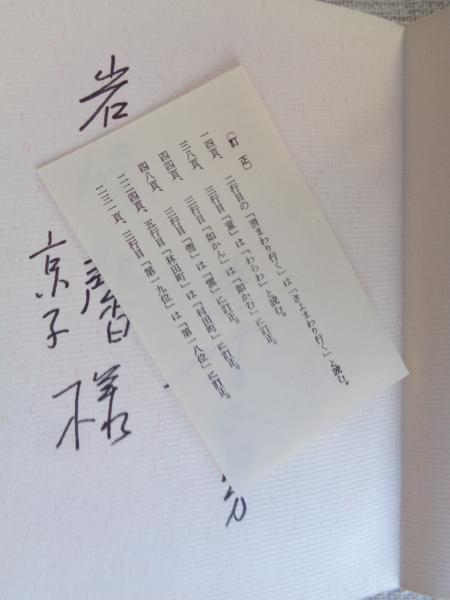 〔訂 正〕
一四頁、二行目の「清まわり行く」は「きよまわり行く」と読む。
三八頁、三行目「童」は「わらわ」と読む。
四四頁、三行目「如かん」は「如かむ」に訂正。
四八頁、三行目「雪」は「雲」に訂正。
二二四頁、五行目「林田町」は「村田町」に訂正。
二三一頁、三行目「第一九位」は「第一八位」に訂正。
岩
京子
様